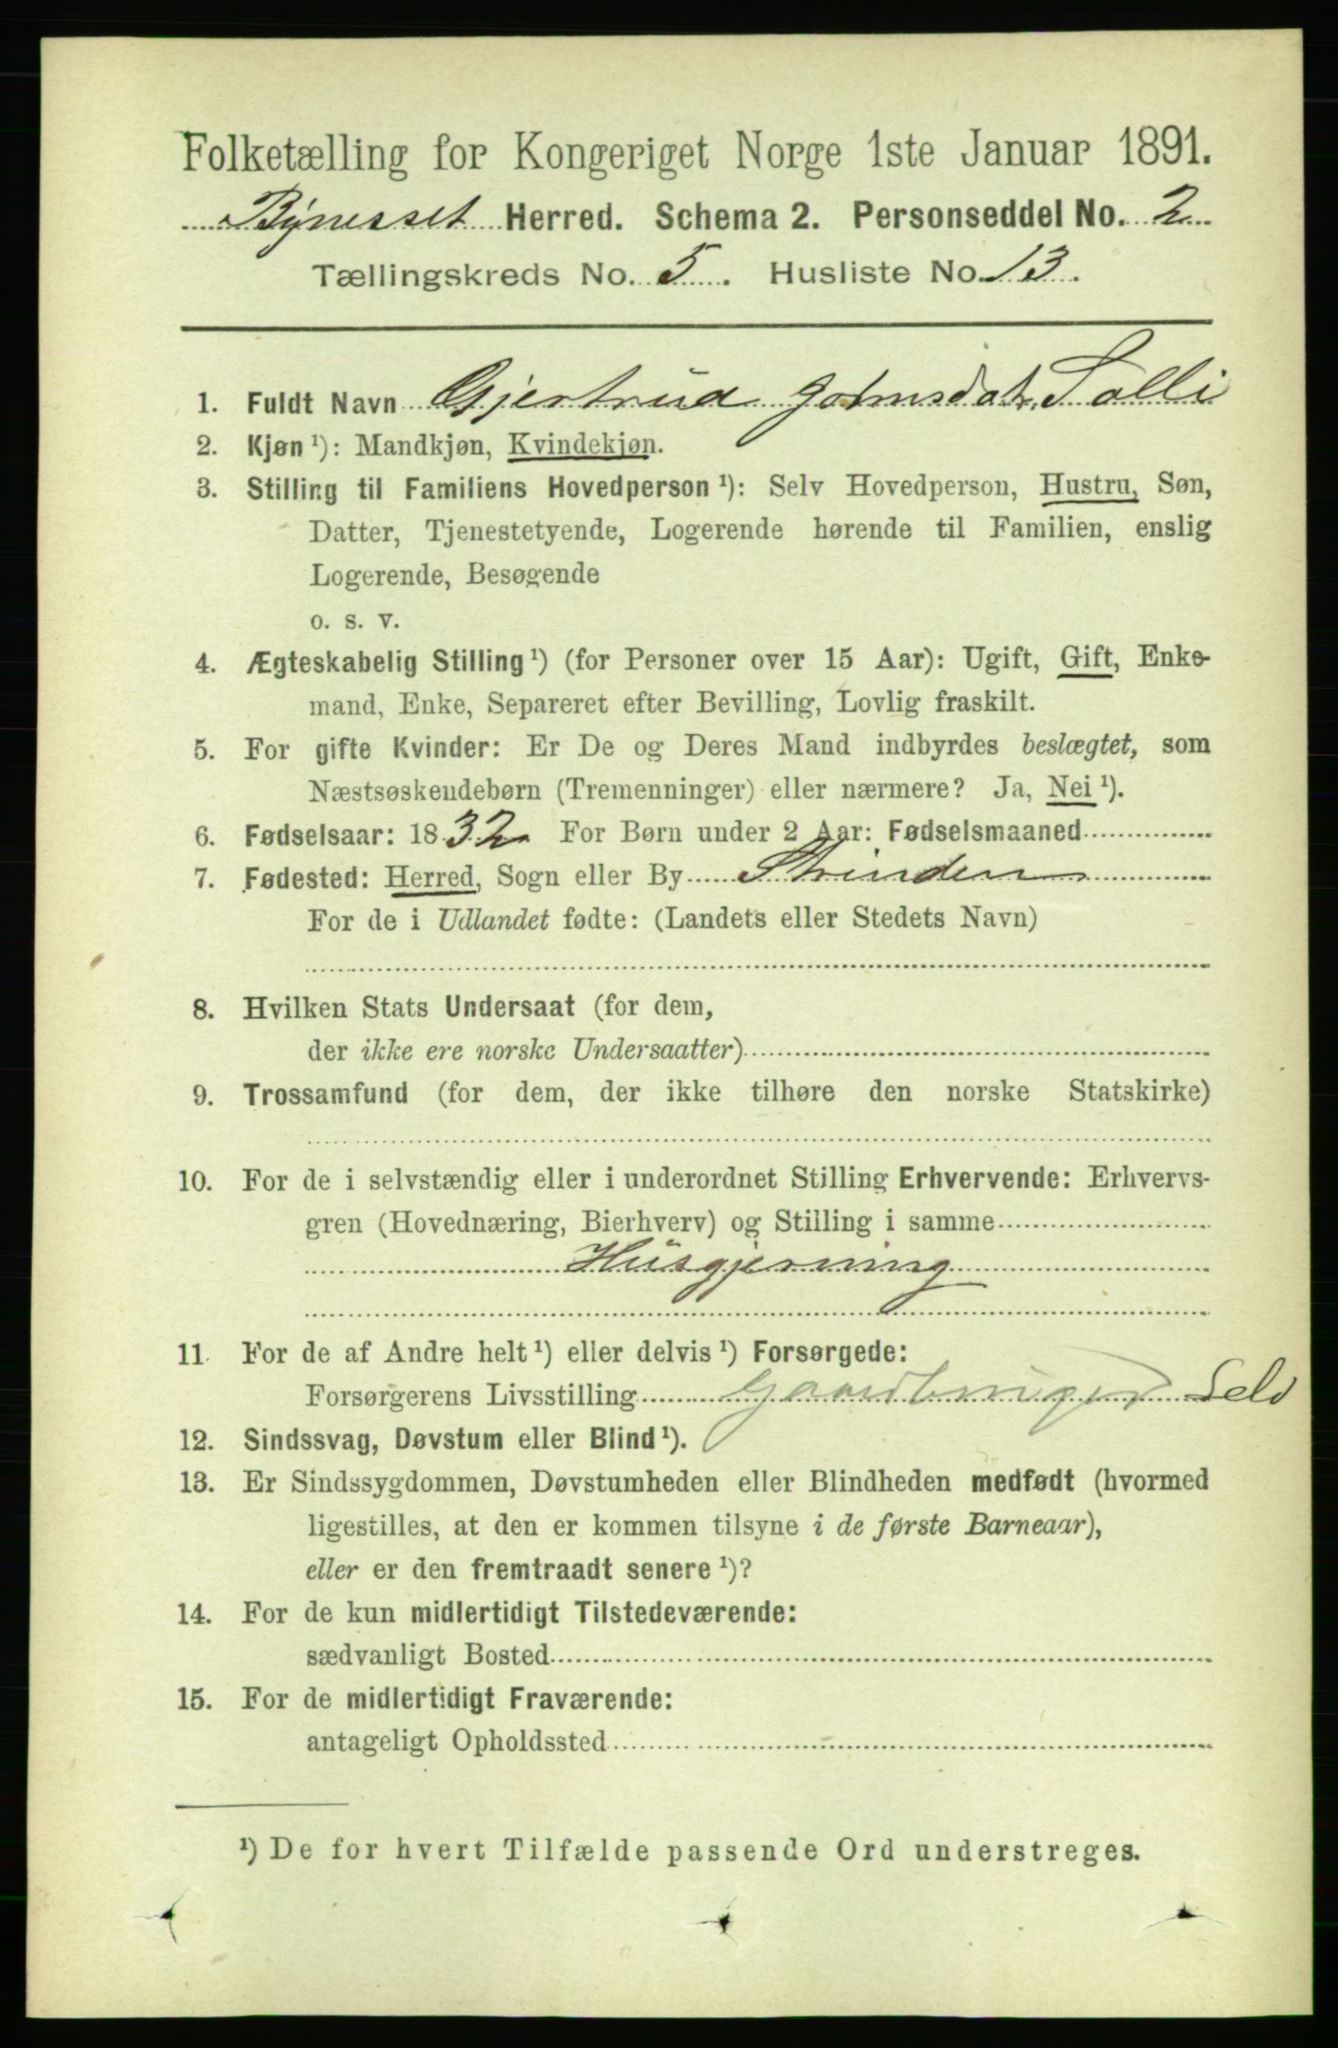 Folketælling for Kongeriget Norge 1ste Januar 1891.
Bynesset Herred. Schema 2. Personseddel No. 2
Tællingskreds No. 5. Husliste No. 13.
1. Fuldt Navn Gjertrud Johnsdatr. Solli
2. Kjøn ¹): Mandkjøn, Kvindekjøn.
3. Stilling til Familiens Hovedperson ¹): Selv Hovedperson, Hustru, Søn,
Datter, Tjenestetyende, Logerende hørende til Familien, enslig
Logerende, Besøgende
o. s. v.
4. Ægteskabelig Stilling ¹) (for Personer over 15 Aar): Ugift, Gift, Enke-
mand, Enke, Separeret efter Bevilling, Lovlig fraskilt.
5. For gifte Kvinder: Er De og Deres Mand indbyrdes beslægtet, som
Næstsøskendebørn (Tremenninger) eller nærmere? Ja, Nei ¹).
6. Fødselsaar: 1832 For Børn under 2 Aar: Fødselsmaaned
7. Fødested: Herred, Sogn eller By Strinden
For de i Udlandet fødte: (Landets eller Stedets Navn)
8. Hvilken Stats Undersaat (for dem,
der ikke ere norske Undersaatter)
9. Trossamfund (for dem, der ikke tilhøre den norske Statskirke)
10. For de i selvstændig eller i underordnet Stilling Erhvervende: Erhvervs-
gren (Hovednæring, Bierhverv) og Stilling i samme
Husgjerning
11. For de af Andre helt ¹) eller delvis ¹) Forsørgede:
Forsørgerens Livsstilling Gaardbruger Selv
12. Sindssvag, Døvstum eller Blind ¹).
13. Er Sindssygdommen, Døvstumheden eller Blindheden medfødt (hvormed
ligestilles, at den er kommen tilsyne i de første Barneaar),
eller er den fremtraadt senere ¹)?
14. For de kun midlertidigt Tilstedeværende:
sædvanligt Bosted
15. For de midlertidigt Fraværende:
antageligt Opholdssted
¹) De for hvert Tilfælde passende Ord understreges.